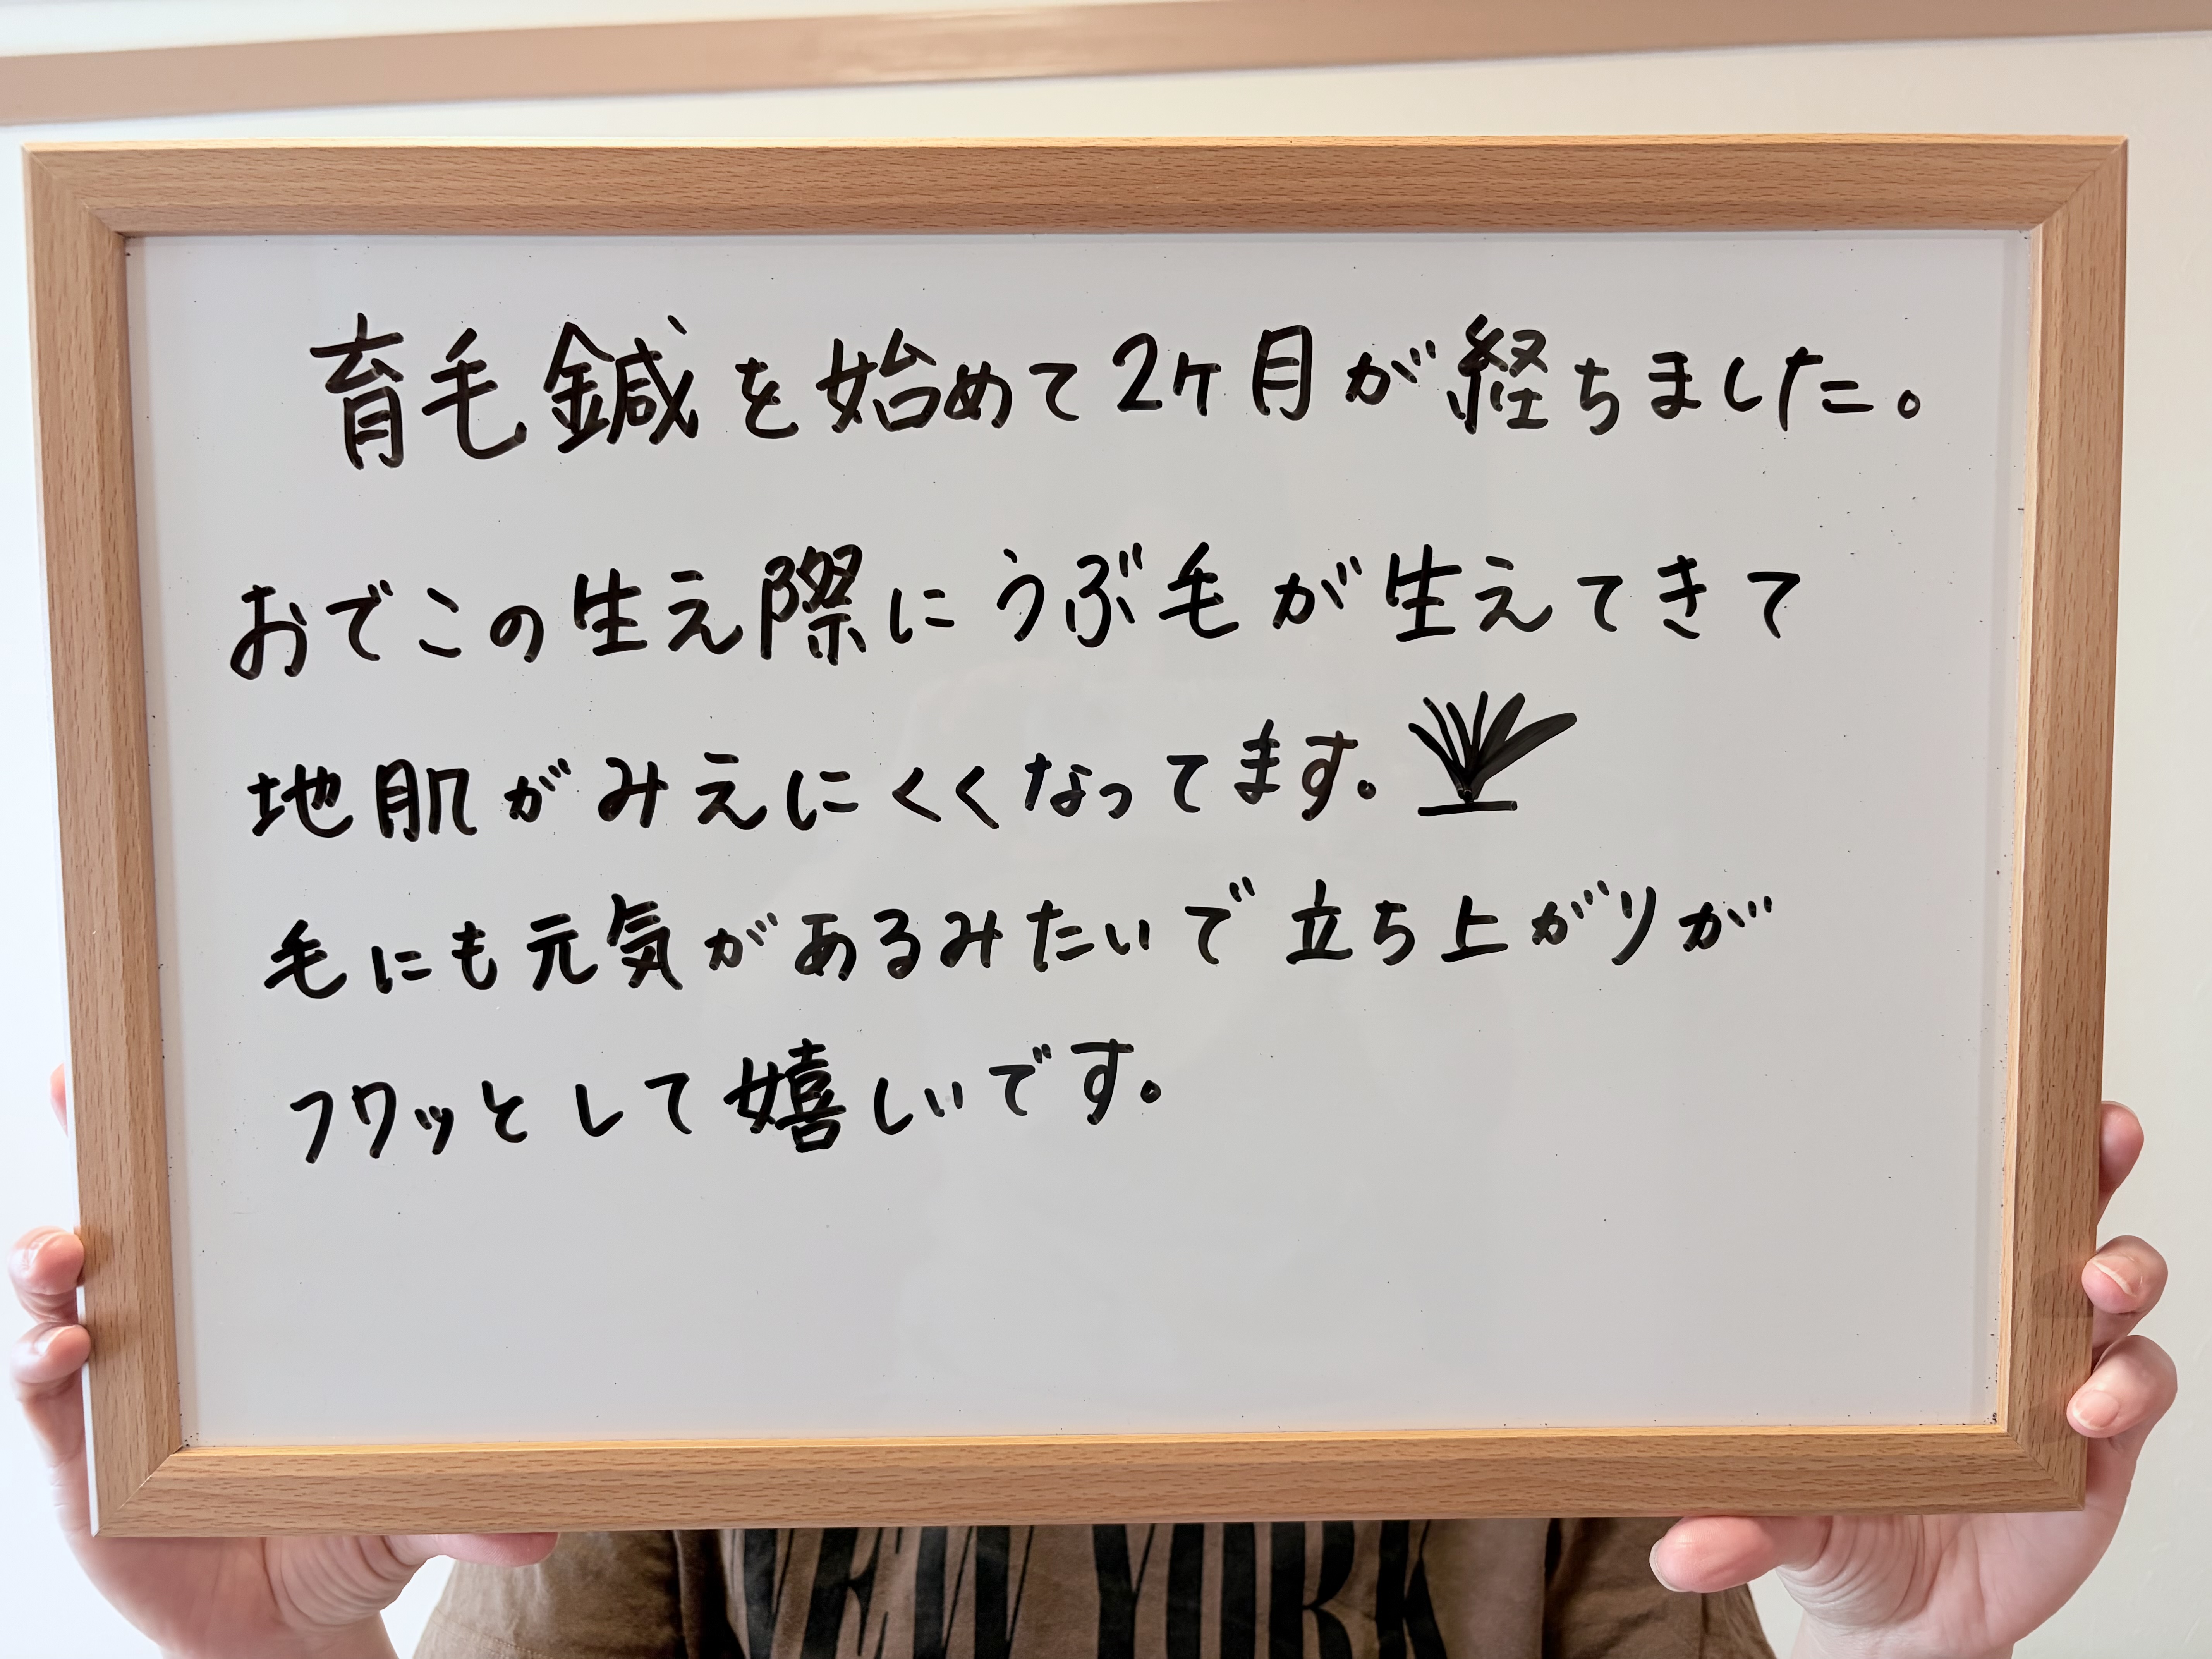 育毛鍼を始めて2ヶ月が経ちました。
おでこの生え際にうぶ毛が生えてきて
地肌がみえにくくなってます。
毛にも元気があるみたいで立ち上がりが
フワッとして嬉しいです。
NEW YORK